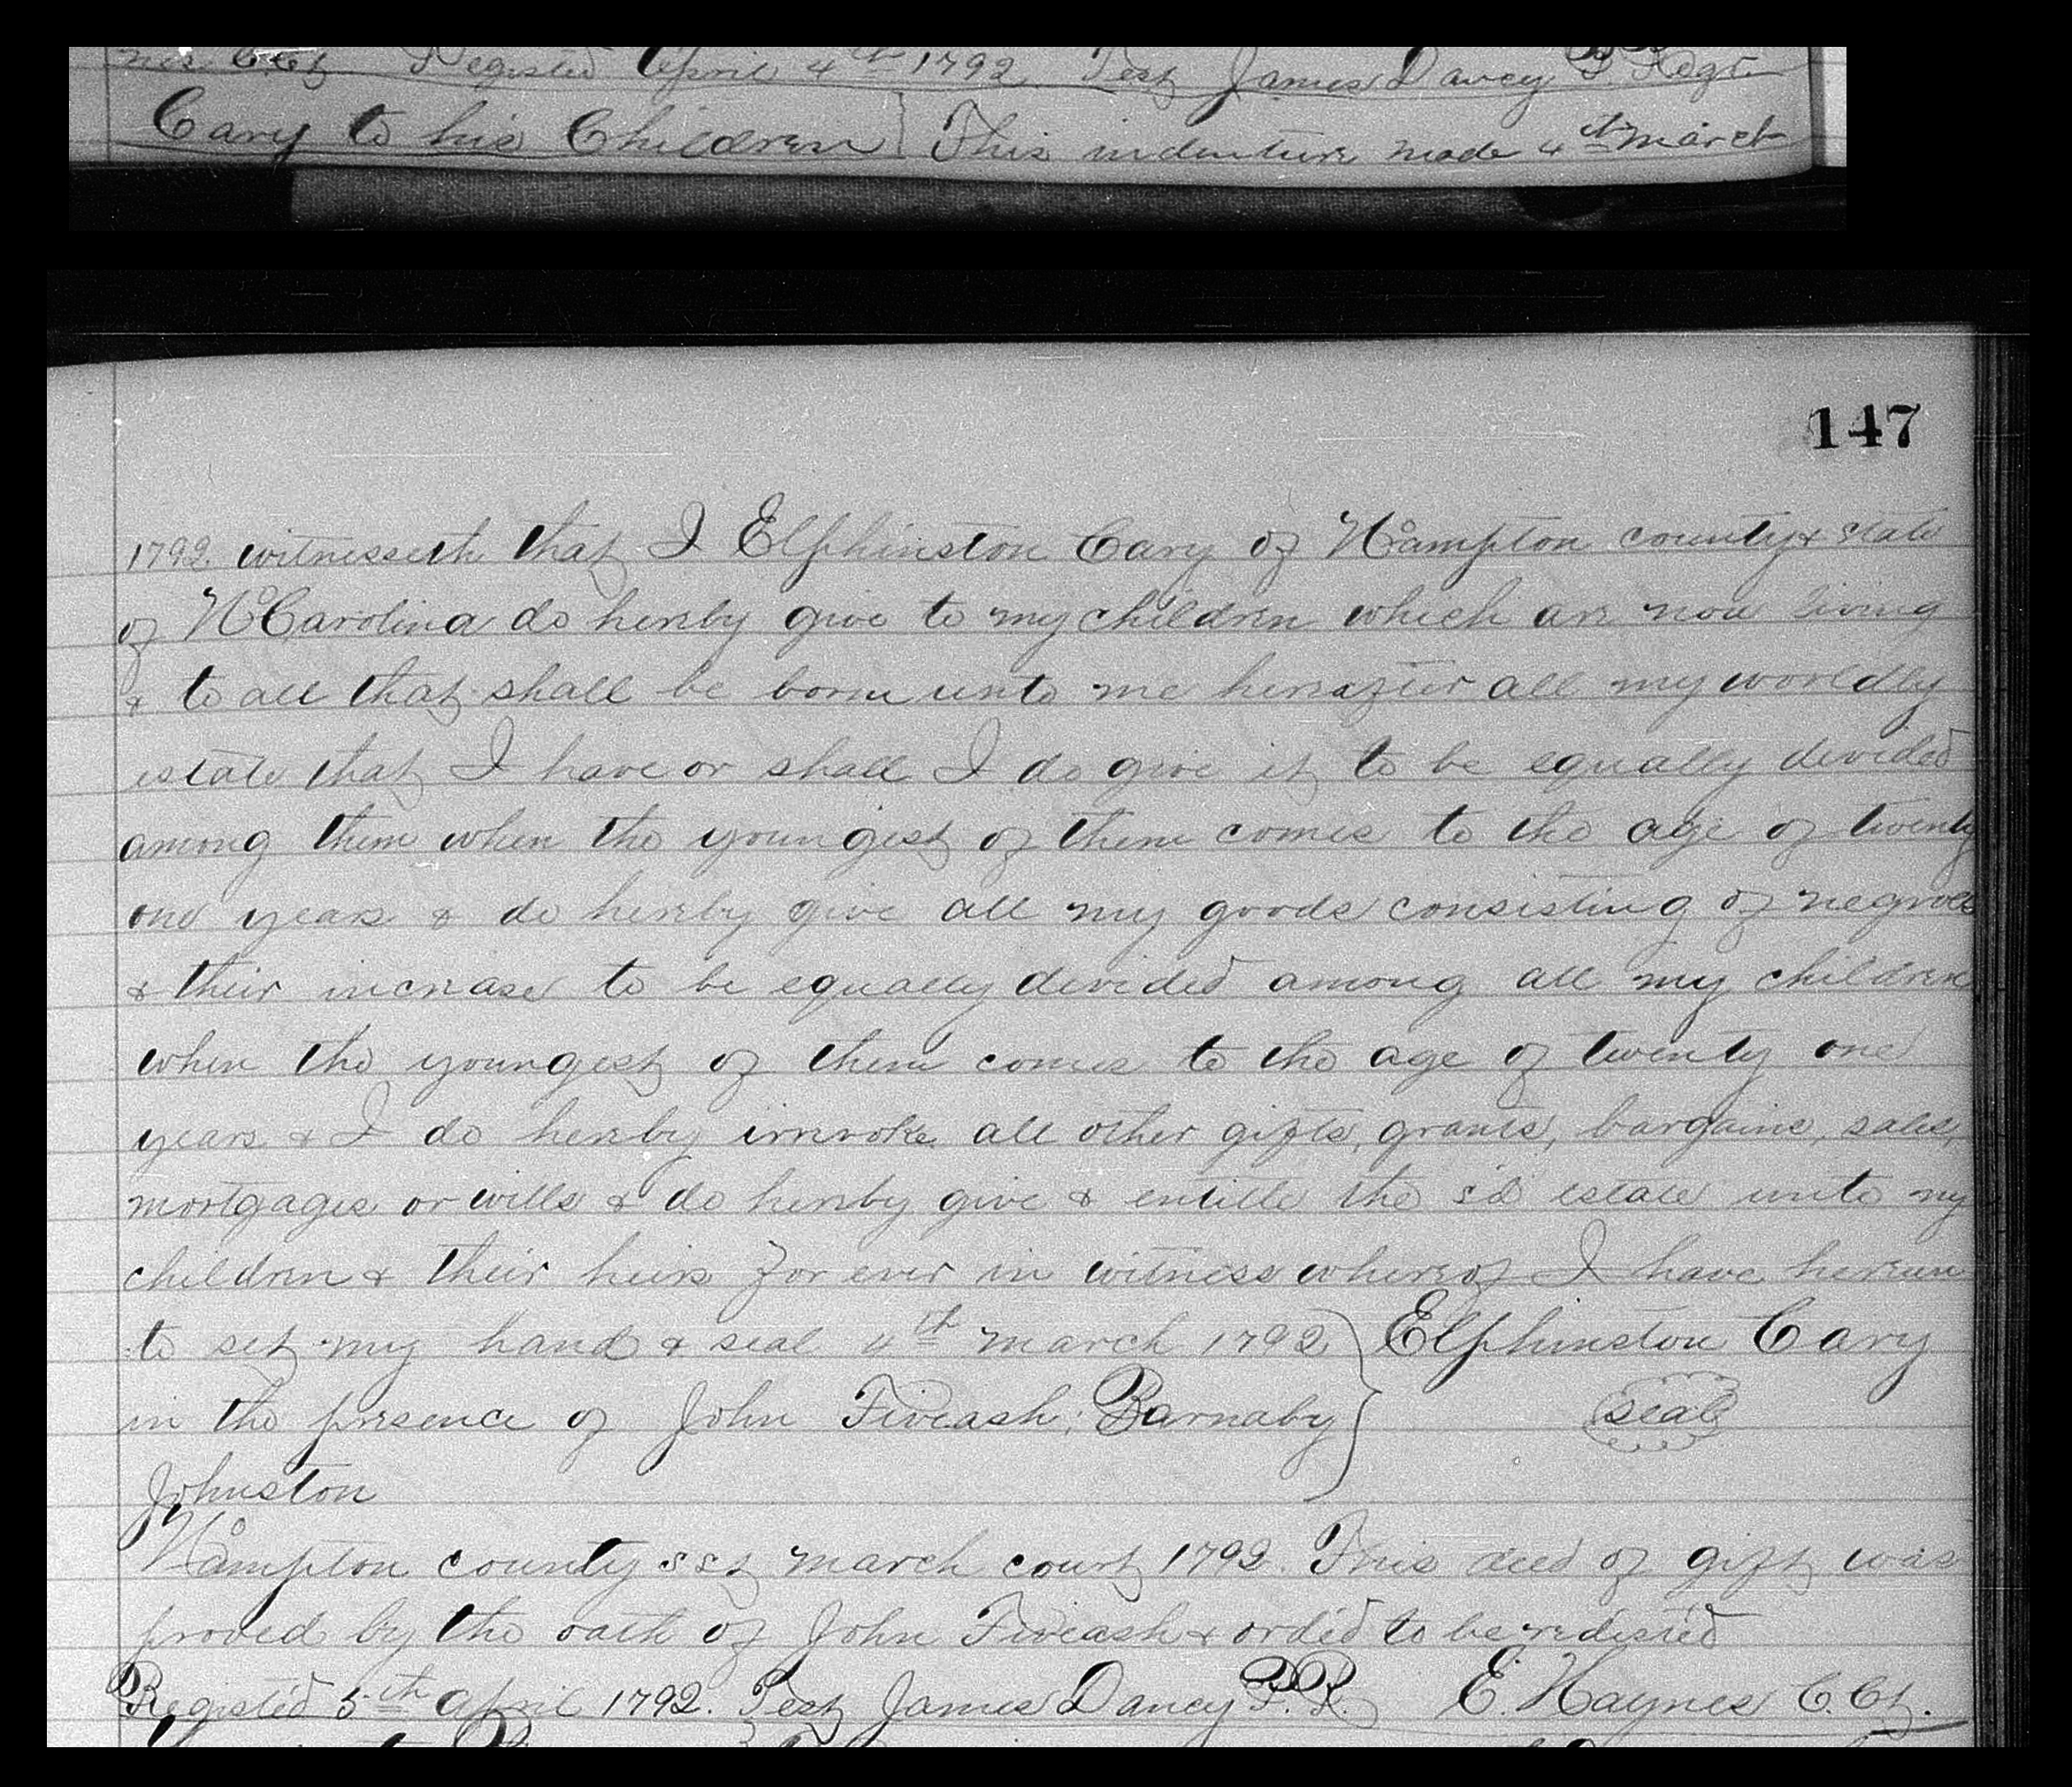 nes C.Ct Registd April 4th 1792. Test James Dancy P. Regr.
Cary to his Children } This indenture made 4th march
147
1792. witnesseth that I Elphinston Cary of N°ampton county & state
of N°Carolina do hereby give to my children which are now living
& to all that shall be born unto me hereafter all my worldly
estate that I have or shall I do give it to be equally divided
among them when the youngest of them comes to the age of twenty
one years & do hereby give all my goods consisting of negroes
& their increase to be equally divided among all my children
when the youngest of them comes to the age of twenty one
years & I do hereby irrevoke all other gifts, grants, bargains, sales,
mortgages or wills & do hereby give & entitle the s'd estate unto my
children & their heirs for ever in witness whereof I have hereun
to set my hand & seal 4th march 1792 } Elphinston Cary
in the presence of John Fiveash, Barnaby seal
Johnston
N°ampton county sst march court 1792. This deed of gift was
proved by the oath of John Fiveash & ord'ed to be redisted
Registed 5th april 1792. Test James Dancy P.R. E. Haynes C.Ct.